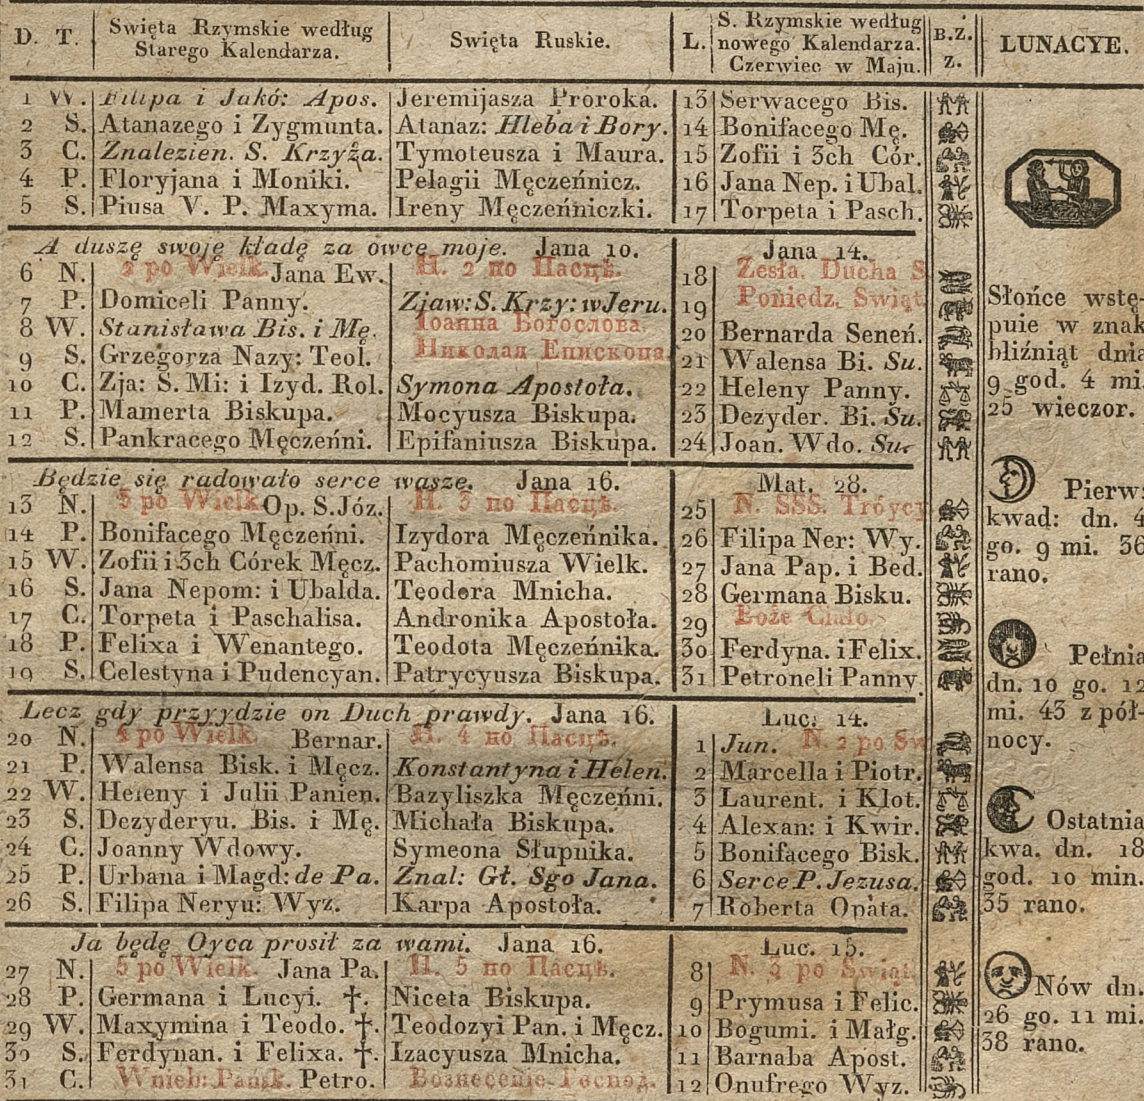 D. T. Swięta Rzymskie według Starego Kalendarza. Swięta Ruskie. L. S. Rzymskie według nowego Kalendarza. Czerwiec w Maju. B.Z. Z. LUNACYE.
1 W. Filipa i Jakó: Apos. Jeremijasza Proroka. 13 Serwacego Bis.
2 S. Atanazego i Zygmunta. Atanaz: Hleba i Bory. 14 Bonifacego Mę.
3 C. Znalezien. S. Krzyża. Tymoteusza i Maura. 15 Zofii i 3ch Cór.
4 P. Floryjana i Moniki. Pelagii Męczeńnicz. 16 Jana Nep. i Ubal.
5 S. Piusa V. P. Maxyma. Ireny Męczeńniczki. 17 Torpeta i Pasch.
A duszę swoję kładę za owce moje. Jana 10. Jana 14.
6 N. 2 po Wielk. Jana Ew. Н. 2 по Пасцѣ. 18 Zesła. Ducha S
7 P. Domiceli Panny. Zjaw: S. Krzy: w Jeru. 19 Poniedz. Swiąt
8 W. Stanisława Bis. i Mę. Іоанна Богослова. 20 Bernarda Seneń.
9 S. Grzegorza Nazy: Teol. Николая Епископа 21 Walensa Bi. Su.
10 C. Zja: S. Mi: i Izyd. Rol. Symona Apostoła. 22 Heleny Panny.
11 P. Mamerta Biskupa. Mocyusza Biskupa. 23 Dezyder. Bi. Su.
12 S. Pankracego Męczeńni. Epifaniusza Biskupa. 24 Joan. Wdo. Su.
Będzie się radowało serce wasze. Jana 16. Mat. 28.
13 N. 3 po Wielk Op. S. Józ. Н. 3 по Пасцѣ. 25 N. SSS. Tróycy
14 P. Bonifacego Męczeńni. Izydora Męczeńnika. 26 Filipa Ner: Wy.
15 W. Zofii i 3ch Córek Męcz. Pachomiusza Wielk. 27 Jana Pap. i Bed.
16 S. Jana Nepom: i Ubalda. Teodora Mnicha. 28 Germana Bisku.
17 C. Torpeta i Paschalisa. Andronika Apostoła. 29 Boże Ciało.
18 P. Felixa i Wenantego. Teodota Męczeńnika. 30 Ferdyna. i Felix.
19 S. Celestyna i Pudencyan. Patrycyusza Biskupa. 31 Petroneli Panny.
Lecz gdy przyydzie on Duch prawdy. Jana 16. Luc. 14.
20 N. 4 po Wielk. Bernar. Н. 4 по Пасцѣ. 1 Jun. N. 2 po Św
21 P. Walensa Bisk. i Męcz. Konstantyna i Helen. 2 Marcella i Piotr.
22 W. Heleny i Julii Panien. Bazyliszka Męczeńni. 3 Laurent. i Klot.
23 S. Dezyderyu. Bis. i Mę. Michała Biskupa. 4 Alexan: i Kwir.
24 C. Joanny Wdowy. Symeona Słupnika. 5 Bonifacego Bisk.
25 P. Urbana i Magd: de Pa. Znal: Gł. Sgo Jana. 6 Serce P. Jezusa.
26 S. Filipa Neryu: Wyz. Karpa Apostoła. 7 Roberta Opata.
Ja będę Oyca prosił za wami. Jana 16. Luc. 15.
27 N. 5 po Wielk. Jana Pa. Н. 5 по Пасцѣ. 8 N. 3 po Swiąt.
28 P. Germana i Lucyi. †. Niceta Biskupa. 9 Prymusa i Felic.
29 W. Maxymina i Teodo. †. Teodozyi Pan. i Męcz. 10 Bogumi. i Małg.
30 S. Ferdynan. i Felixa. †. Izacyusza Mnicha. 11 Barnaba Apost.
31 C. Wnieb: Pańsk. Petro. Вознесеніе Господ. 12 Onufrego Wyz.
Słońce wstę-
puie w znak
bliźniąt dnia
9 god. 4 mi.
25 wieczor.
Pierw:
kwad: dn. 4
go. 9 mi. 36
rano.
Pełnia
dn. 10 go. 12
mi. 43 z pół-
nocy.
Ostatnia
kwa. dn. 18
god. 10 min.
35 rano.
Nów dn.
26 go. 11 mi.
38 rano.